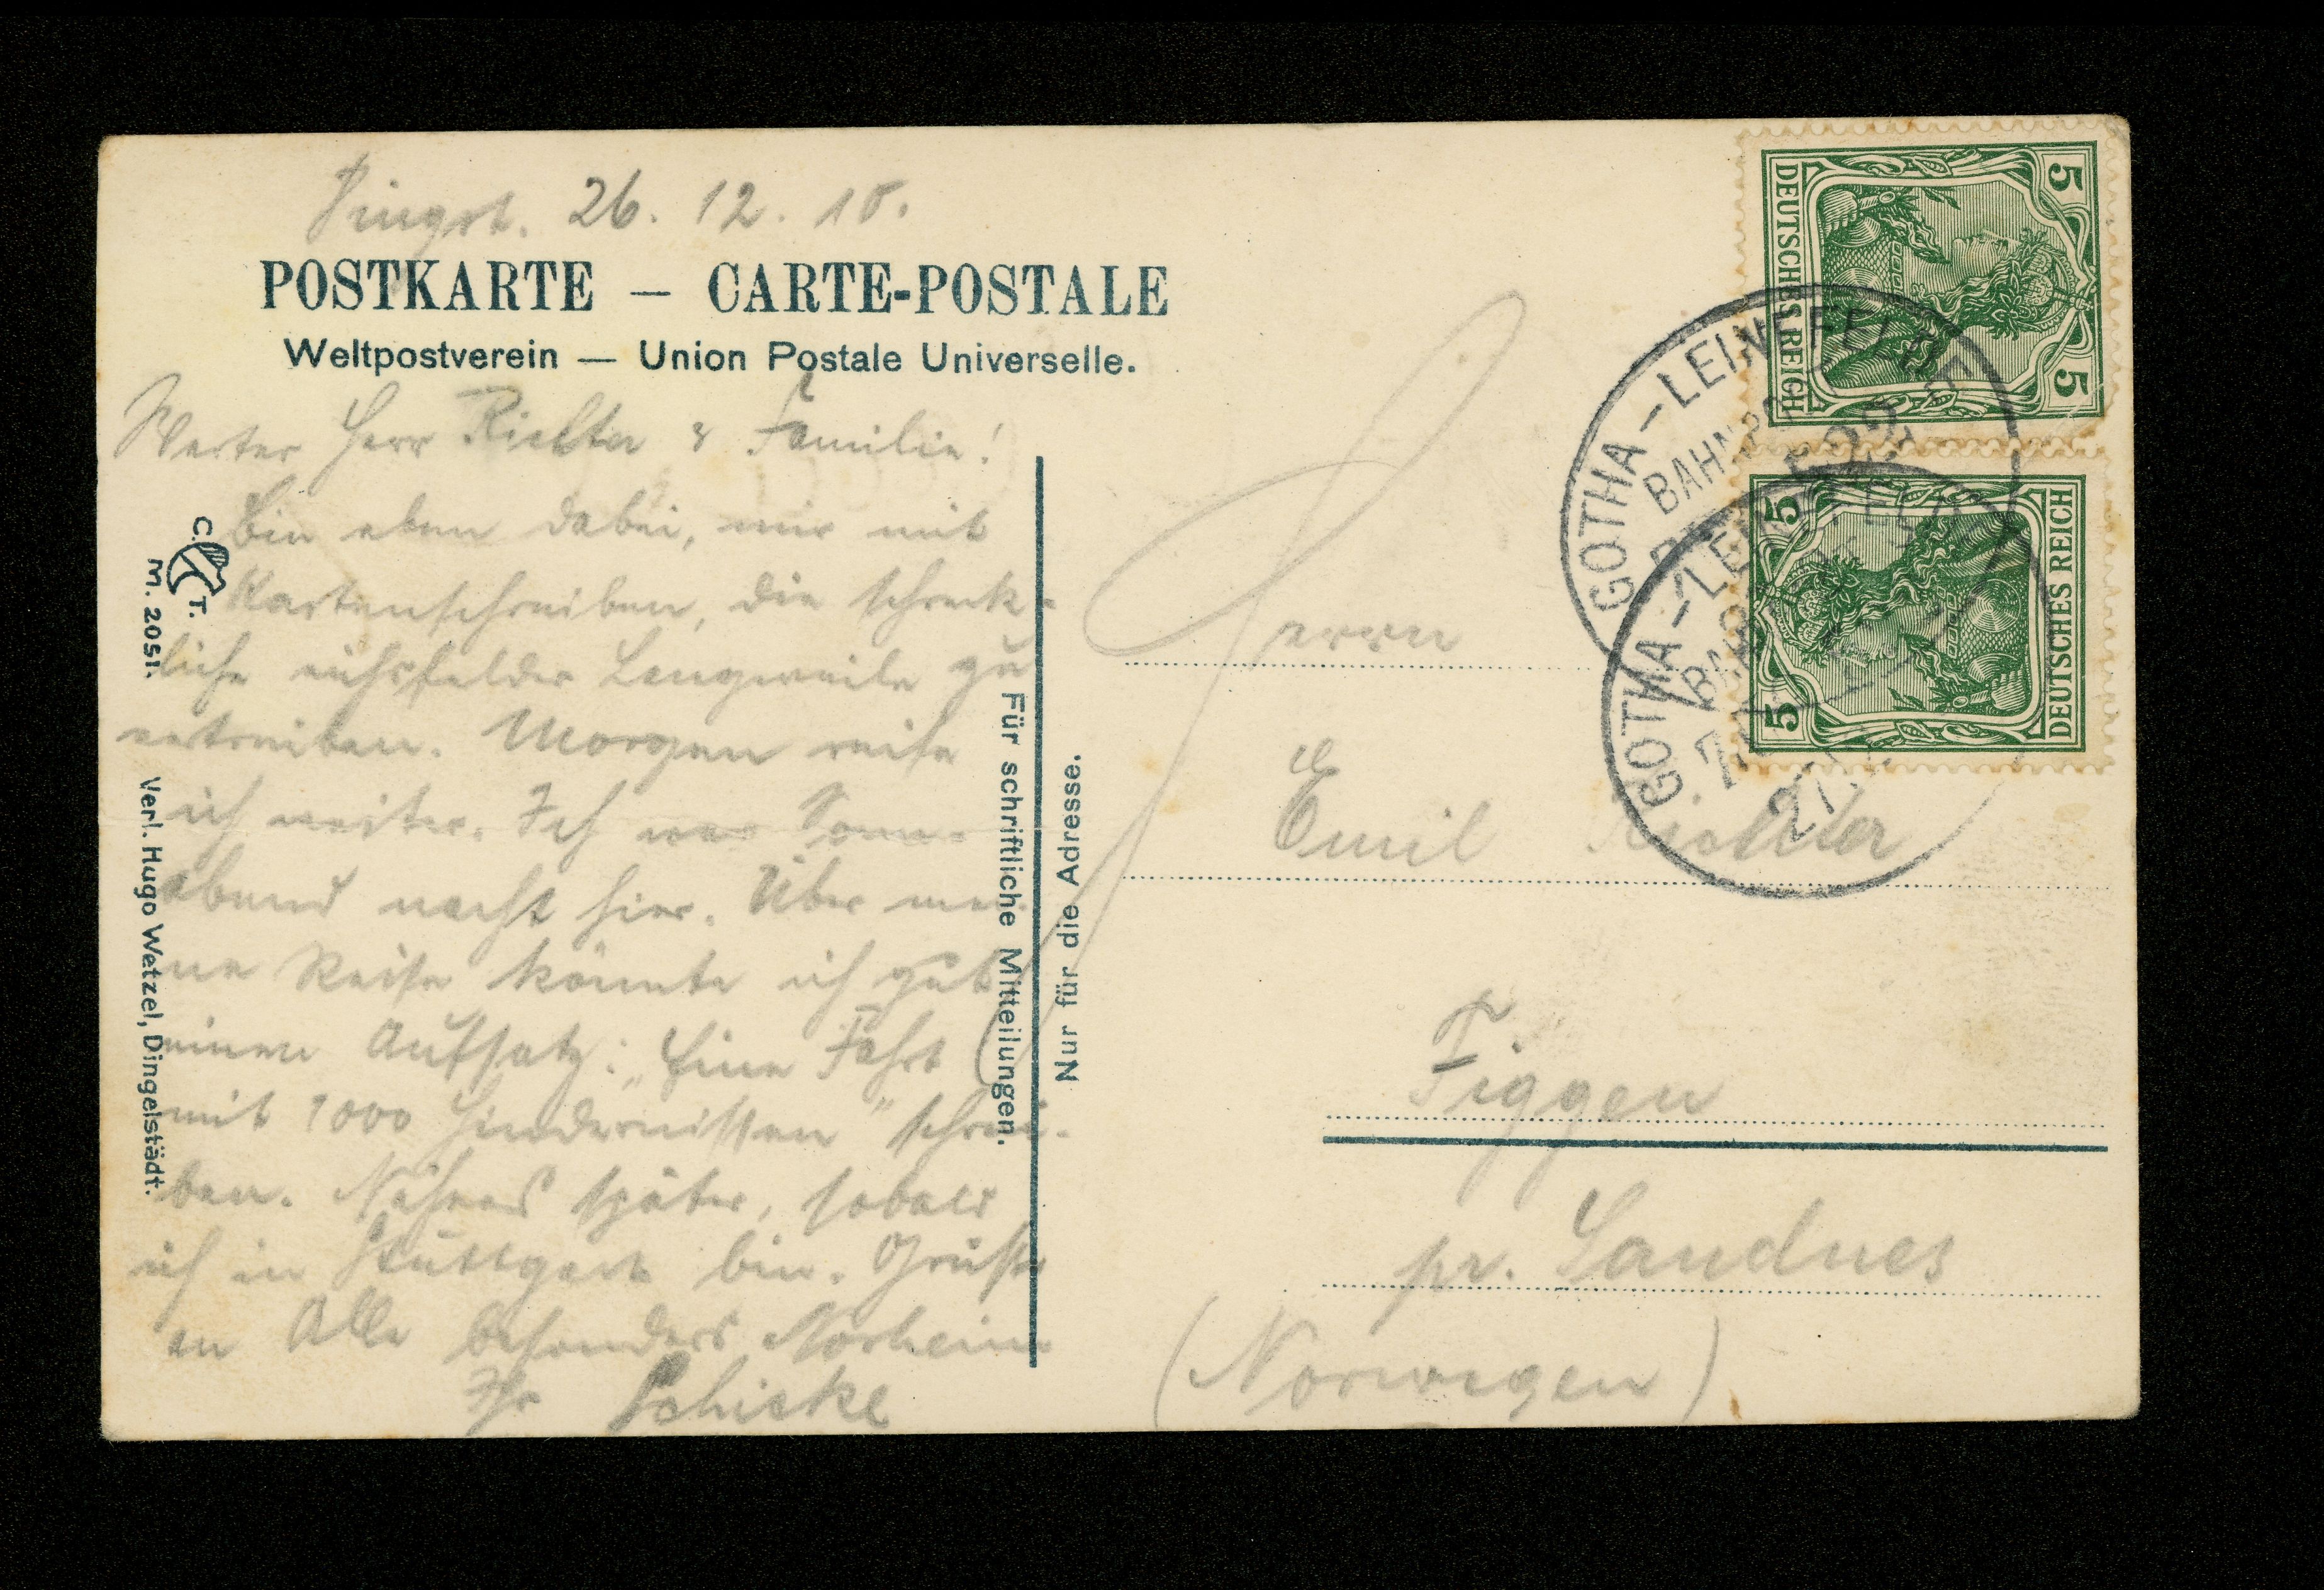 Dingst. 26. 12. 10.
POSTKARTE — CARTE-POSTALE
Weltpostverein — Union Postale Universelle.
Werter Herr Richter & Familie!
Bin eben dabei, mir mit
Kartenschreiben, die schreck-
liche eichsfelder Langweile zu
vertreiben. Morgen reise
ich weiter. Ich war Sonn-
abend nacht hier. Über mei-
ne Reise könnte ich gut
einen Aufsatz: „Eine Fahrt
mit 1000 Hindernissen" schrei-
ben. Näheres später, sobald
ich in Stuttgart bin. Grüße
an Alle besonders
Ihr Schicke
C. T.
M. 2051.
Verl. Hugo Wetzel, Dingelstädt.
Für schriftliche Mitteilungen.
Nur für die Adresse.
Herrn
Emil Richter
Figgen
pr. Sandnes
(Norwegen)
DEUTSCHES REICH
5 5
DEUTSCHES REICH
5 5
GOTHA-LEINEFELDE
BAHNPOST
GOTHA-LEINEFELDE